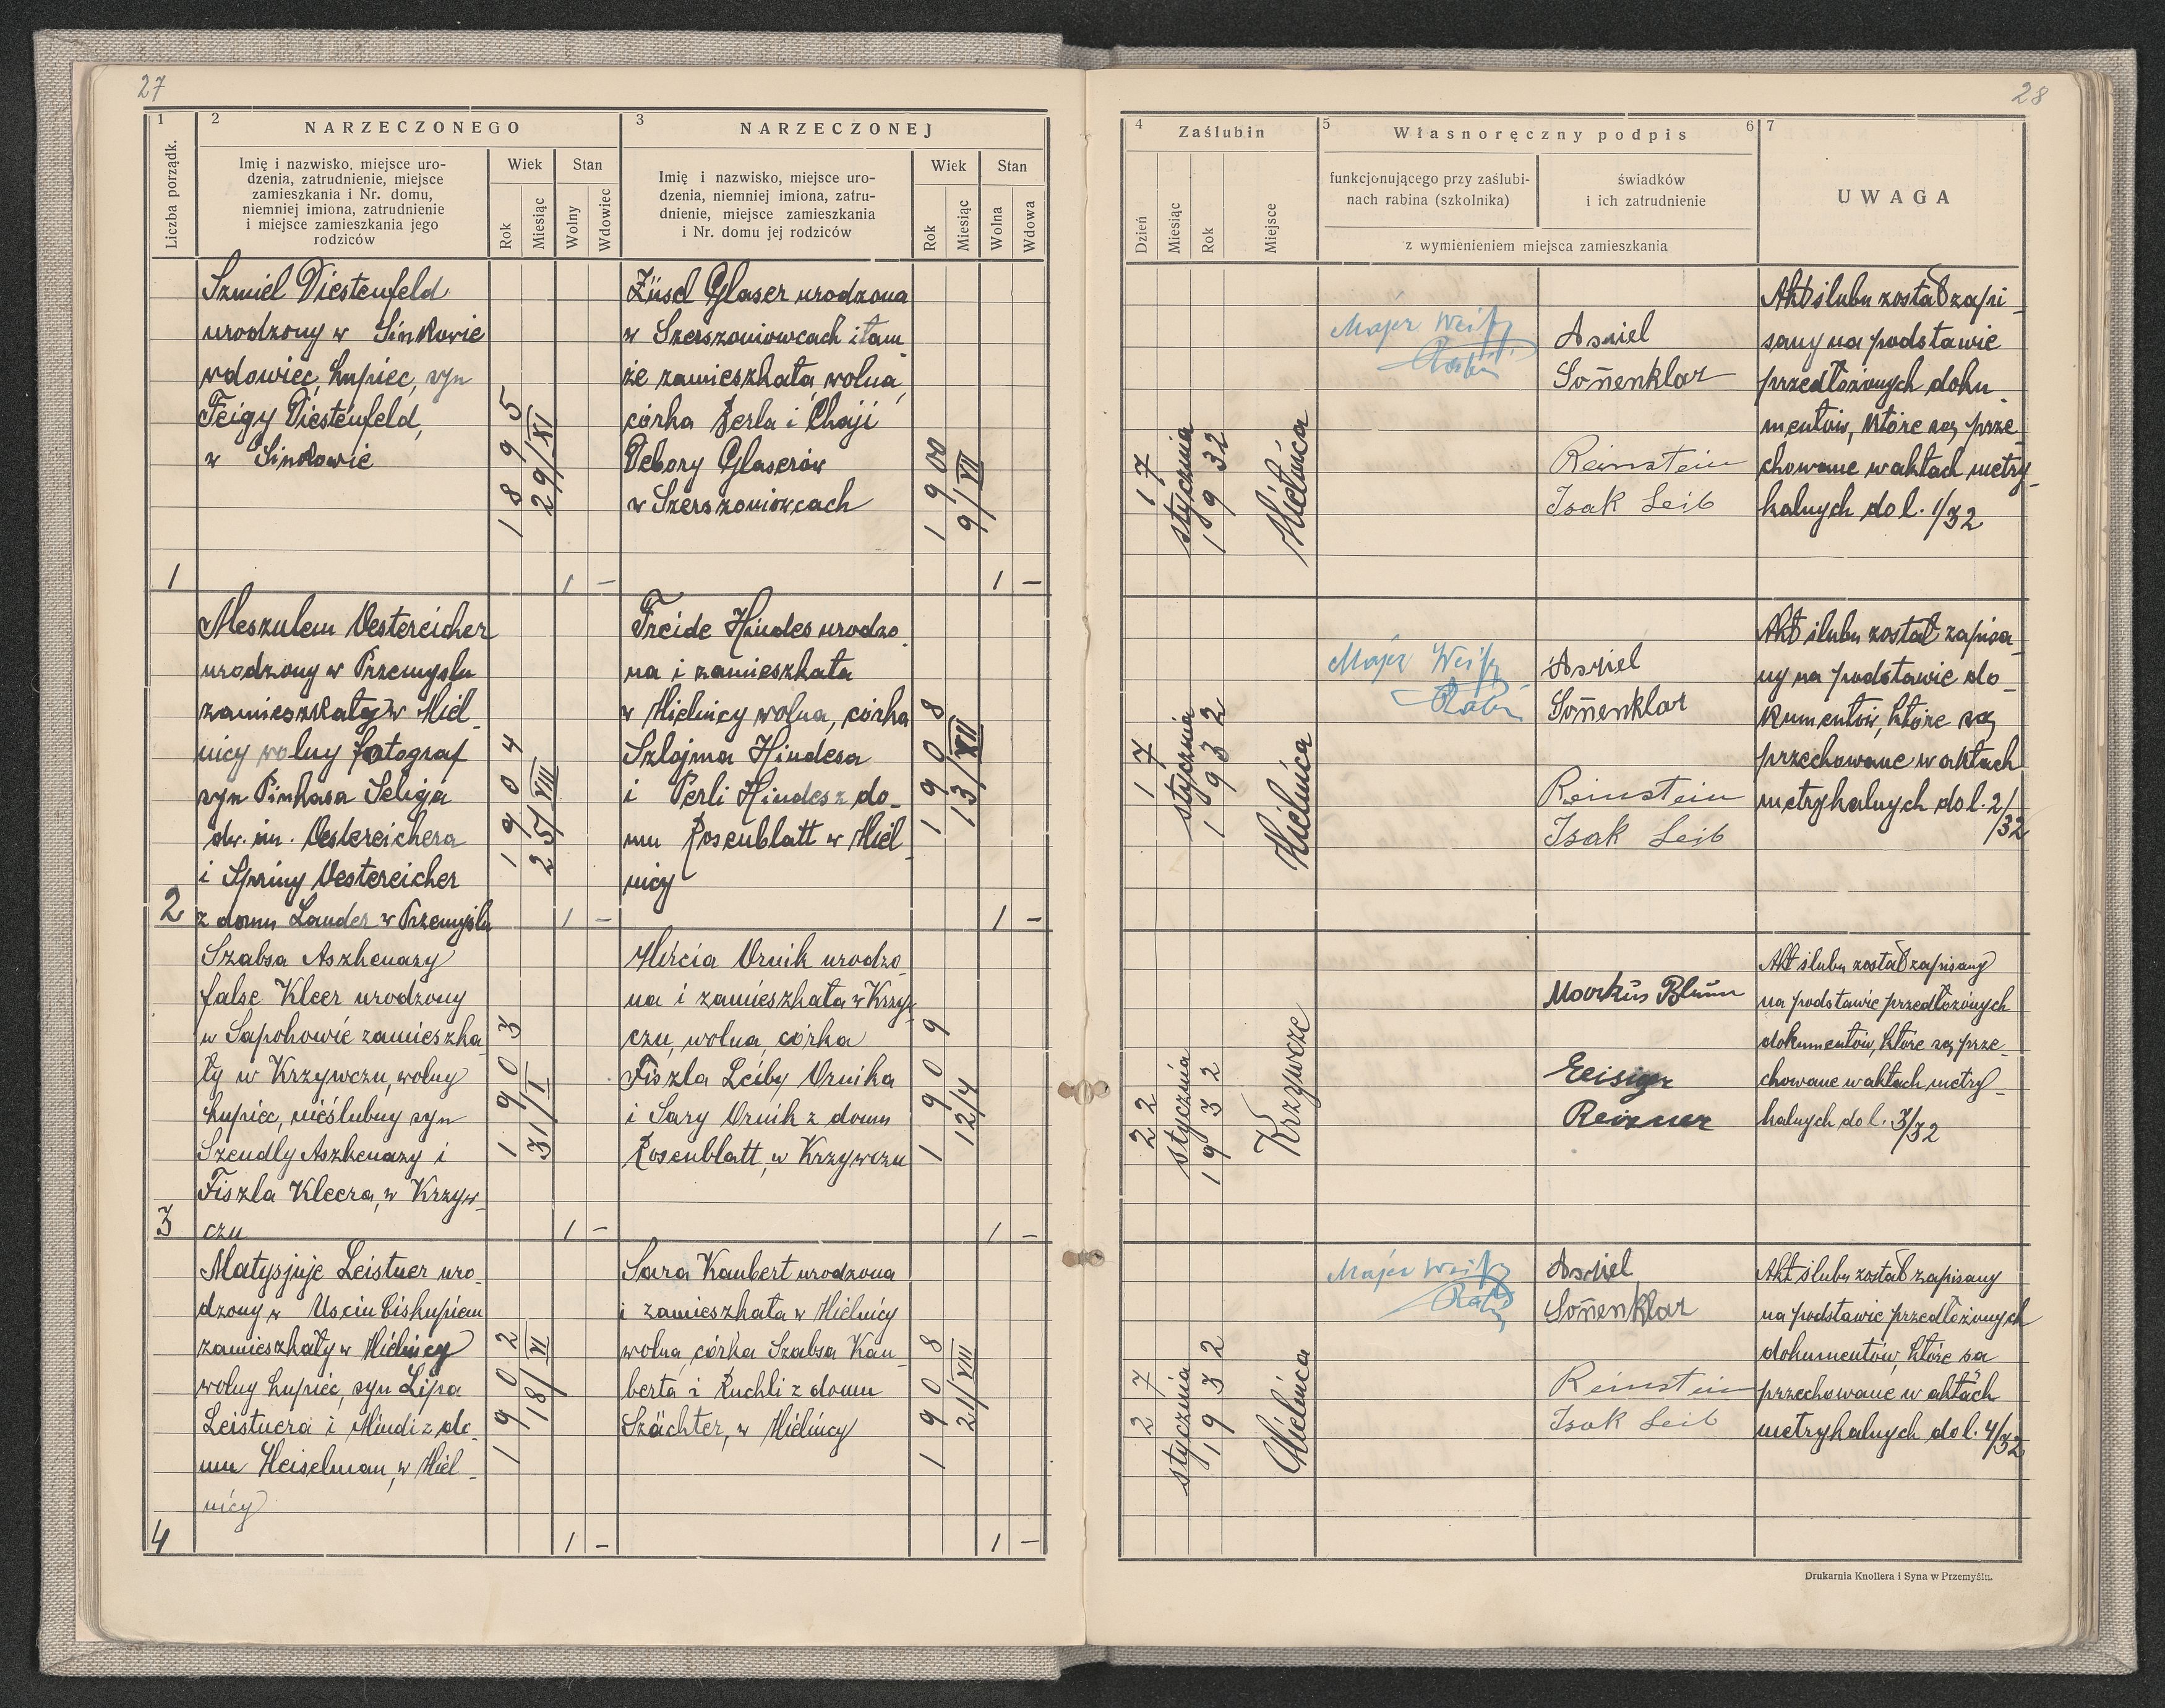 27
1
2
NARZECZONEGO
3
NARZECZONEJ
Liczba porządk.
Imię i nazwisko, miejsce uro-
dzenia, zatrudnienie, miejsce
zamieszkania i Nr. domu,
niemniej imiona, zatrudnienie
i miejsce zamieszkania jego
rodziców
Wiek
Stan
Rok
Miesiąc
Wolny
Wdowiec
Imię i nazwisko, miejsce uro-
dzenia, niemniej imiona, zatru-
dnienie, miejsce zamieszkania
i Nr. domu jej rodziców
Wiek
Stan
Rok
Miesiąc
Wolna
Wdowa
1
Szmiel Diestenfeld
urodzony w Sinkowie
wdowiec, kupiec, syn
Feigy Diestenfeld,
w Sinkowie
1895
29/XI
1 –
Züsel Glaser urodzona
w Szerszeniowcach i tam-
że zamieszkała, wolna,
córka Berla i Chaji
Debory Glaserów
w Szerszeniowcach
1900
9/VII
1 –
2
Meszulem Oestereicher
urodzony w Przemyślu
zamieszkały w Miel-
nicy wolny fotograf
syn Pinkasa Seliga
dw. im. Oestereichera
i Spriny Oestereicher
z domu Lauder w Przemyślu
1904
25/VIII
1 –
Freide Hindes urodzo-
na i zamieszkała
w Mielnicy wolna, córka
Szlojma Hindesa
i Perli Hindes z do-
mu Rosenblatt w Miel-
nicy
1908
13/XII
1 –
3
Szabsa Aszkenazy
false Kleer urodzony
w Sapohowie zamieszka-
ły w Krzywczu, wolny
kupiec, nieślubny syn
Szendly Aszkenazy i
Fiszla Kleera, w Krzyw-
czu
1903
31/I
1 –
Mircia Ornik urodzo-
na i zamieszkała w Krzy-
czu, wolna, córka
Fiszla Leiby Ornika
i Sary Ornik z domu
Rosenblatt, w Krzywczu
1909
12/4
1 –
4
Matysjuje Leistner uro-
dzony w Usciu biskupiem
zamieszkały w Mielnicy
wolny kupiec, syn Lipa
Leistnera i Mindi z do-
mu Heiselman, w Miel-
nicy
1902
18/VI
1 –
Sara Kanbert urodzona
i zamieszkała w Mielnicy
wolna, córka Szabsa Kan-
berta i Ruchli z domu
Szächter, w Mielnicy
1908
21/VIII
1 –
28
4
Zaślubin
5
Własnoręczny podpis
6
7
Dzień
Miesiąc
Rok
Miejsce
funkcjonującego przy zaślubi-
nach rabina (szkolnika)
świadków
i ich zatrudnienie
z wymienieniem miejsca zamieszkania
UWAGA
17
stycznia
1932
Mielnica
Majer Weiss
Rabin
Asriel
Soñenklar
Reinstein
Isak Leib
Akt ślubu został zapi-
sany na podstawie
przedłożonych doku-
mentów, które są prze-
chowane w aktach metry-
kalnych do l. 1/32
17
stycznia
1932
Mielnica
Majer Weiss
Rabin
Asriel
Soñenklar
Reinstein
Isak Leib
Akt ślubu został zapisa-
ny na podstawie do-
kumentów, które są
przechowane w aktach
metrykalnych do l. 2/
/32
22
stycznia
1932
Krzywcze
Markus Blum
Eisig
Reizner
Akt ślubu został zapisany
na podstawie przedłożonych
dokumentów, które są prze-
chowane w aktach metry-
kalnych do l. 3/32
27
stycznia
1932
Mielnica
Majer Weiss
Rabin
Asriel
Soñenklar
Reinstein
Isak Leib
Akt ślubu został zapisany
na podstawie przedłożonych
dokumentów, które sa
przechowane w aktach
metrykalnych do l. 4/32
Drukarnia Knollera i Syna w Przemyślu.